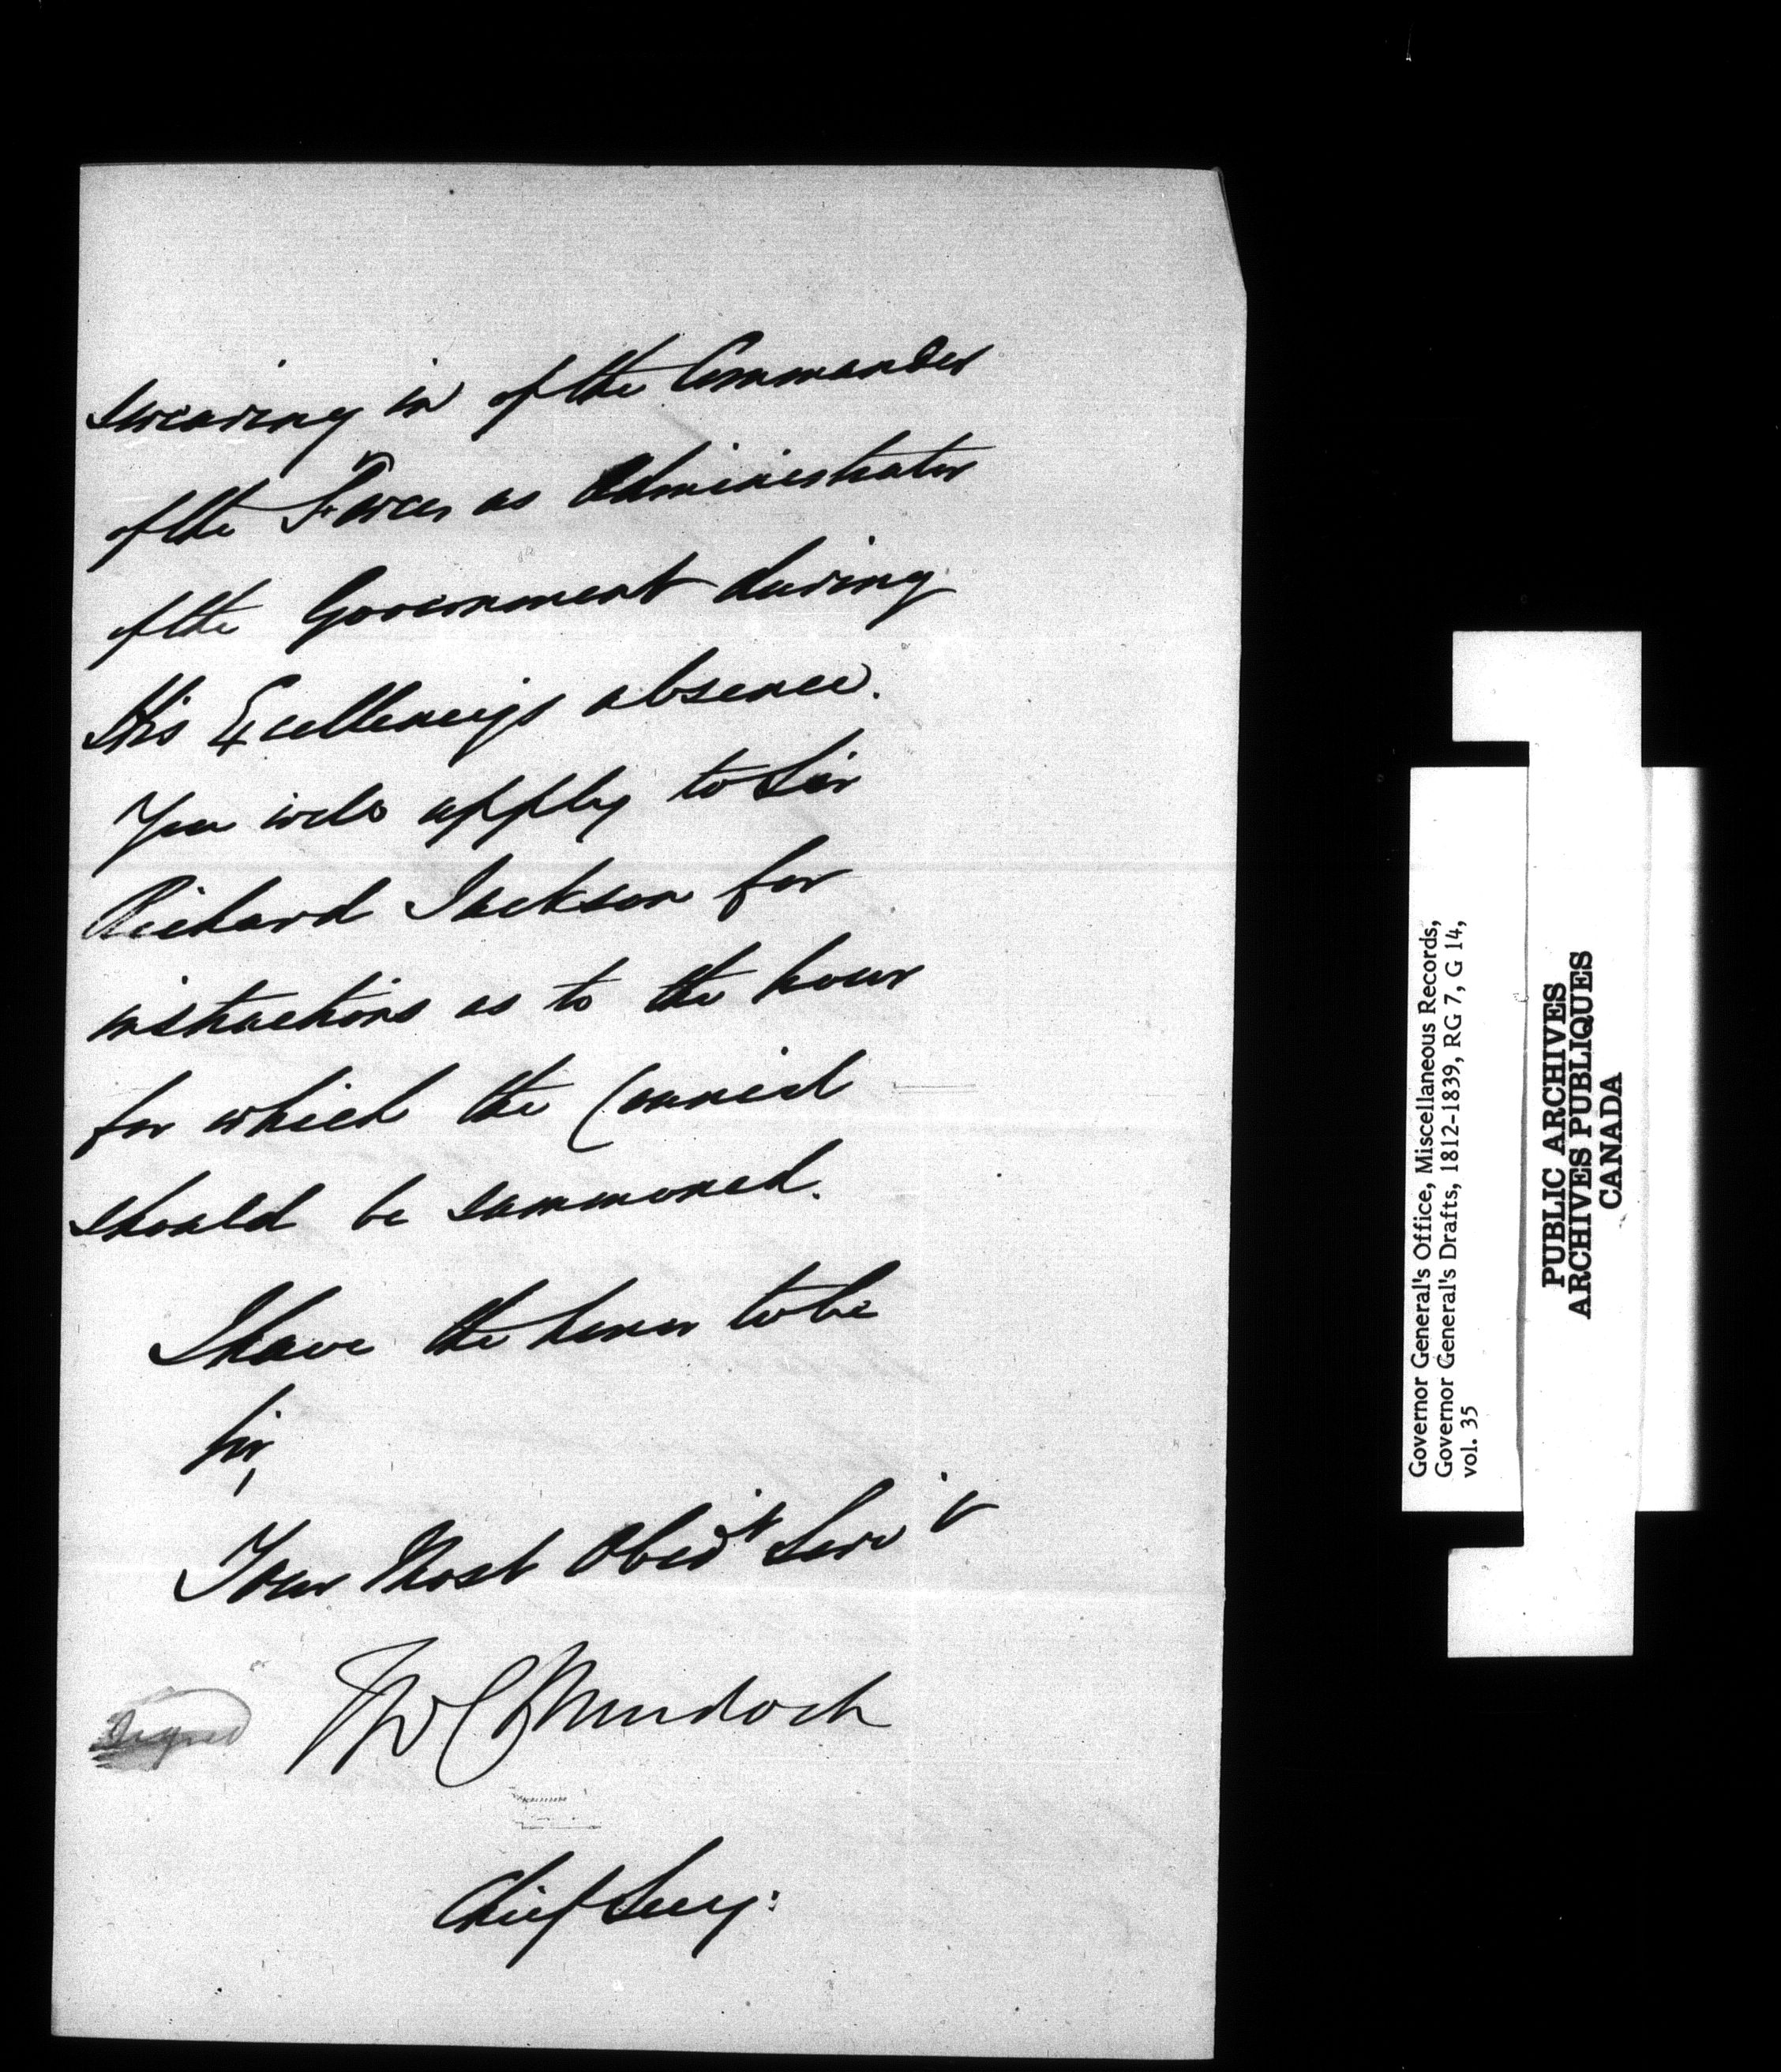 swearing in of the Commander
of the Forces as Administrator
of the Government during
His Excellency's absence.
You will apply to Sir
Richard Jackson for
instructions as to the hour
for which the Council
should be summoned.
I have the honor to be
Sir,
Your Most Obedt Servt
Signed
TWC Murdoch
Chief Secy:
Governor General's Office, Miscellaneous Records,
Governor General's Drafts, 1812-1839, RG 7, G 14,
vol. 35
PUBLIC ARCHIVES
ARCHIVES PUBLIQUES
CANADA